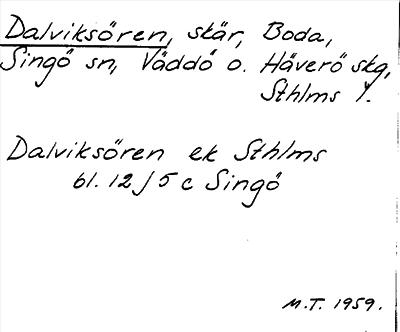 Dalviksören, skär, Boda,
Singö sn, Väddö o. Häverö skg,
Sthlms l.
Dalviksören ek Sthlms
bl. 12 J 5 c Singö
M.T. 1959.